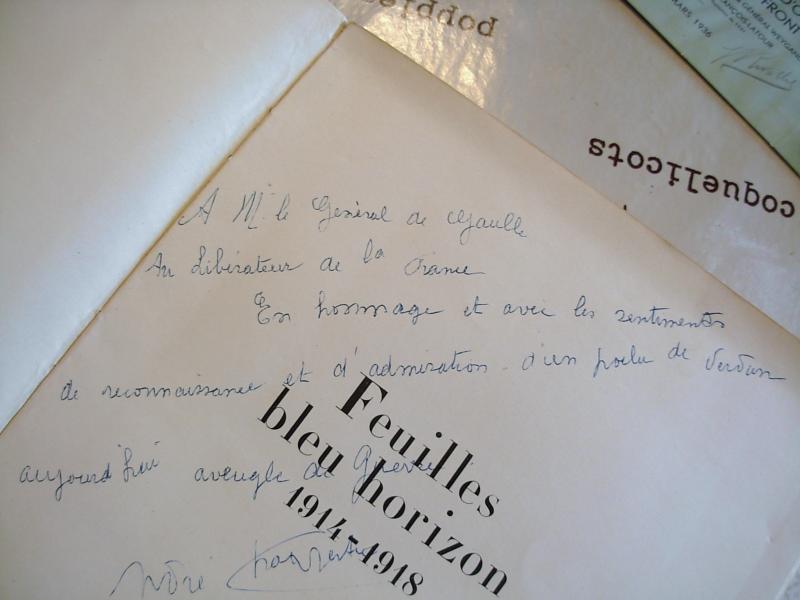 A Mr le Général de Gaulle
Au Libérateur de la France
En hommage et avec les sentiments
de reconnaissance et d'admiration d'un poilu de Verdun
aujourd'hui aveugle de Guerre
André
Feuilles
bleu horizon
1914-1918
coquelicots
FRONT
GÉNÉRAL WEYGAND
MARS 1936